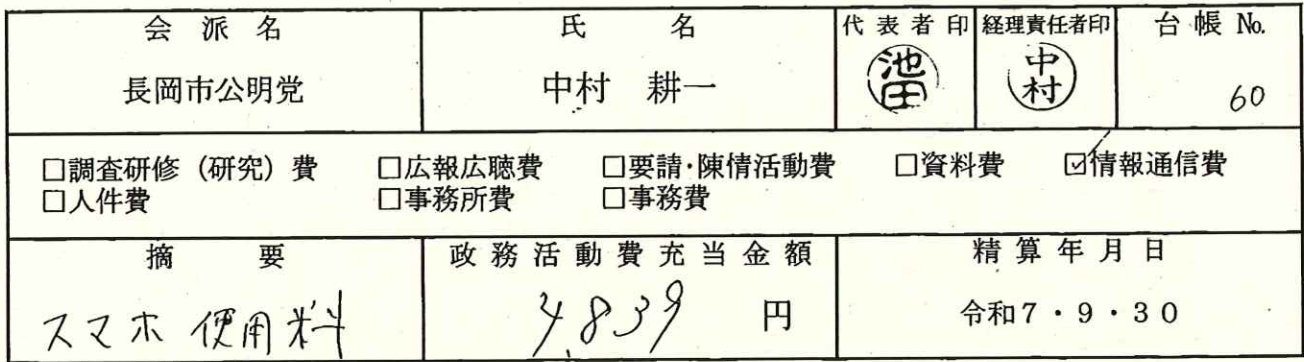 会派名 氏名 代表者印 経理責任者印 台帳No.
長岡市公明党 中村 耕一 池田 中村 60
□調査研修（研究）費 □広報広聴費 □要請・陳情活動費 □資料費 ☑情報通信費
□人件費 □事務所費 □事務費
摘要 政務活動費充当金額 精算年月日
スマホ使用料 4,839 円 令和7・9・30